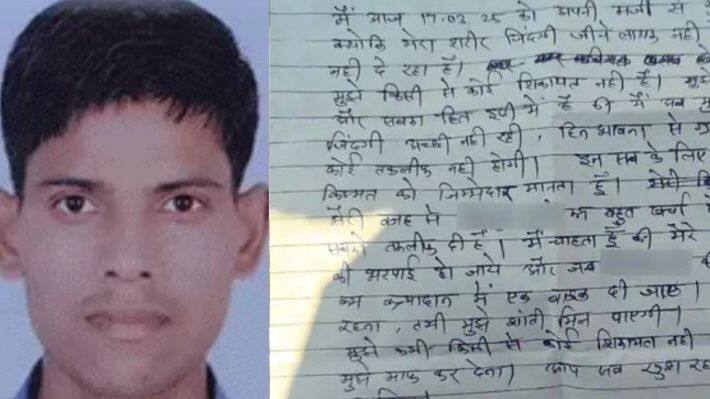 मैं आज 17.03.25 को अपनी मर्जी से
क्योकि मेरा शरीर जिंदगी जीने लायक नही
नही दे रहा है।
मुझे किसी से कोई शिकायत नही है।
और सबका हित इसी में है की मैं
जिंदगी अच्छी नही रही, हिन भावना से
कोई तकलीफ नही होगी। इन सब के लिए
किस्मत को जिम्मेदार मानता हूँ।
मेरी वजह से का बहुत खर्चा
सबको तकलीफ दी है। मैं चाहता हूँ की मेरे
की भरपाई हो जाये और जब
कन्यादान में एक बाइक दी जाए।
रहना, तभी मुझे शांती मिल पाएगी।
मुझे कभी किसी से कोई शिकायत नही
मुझे माफ कर देना। आप सब खुश